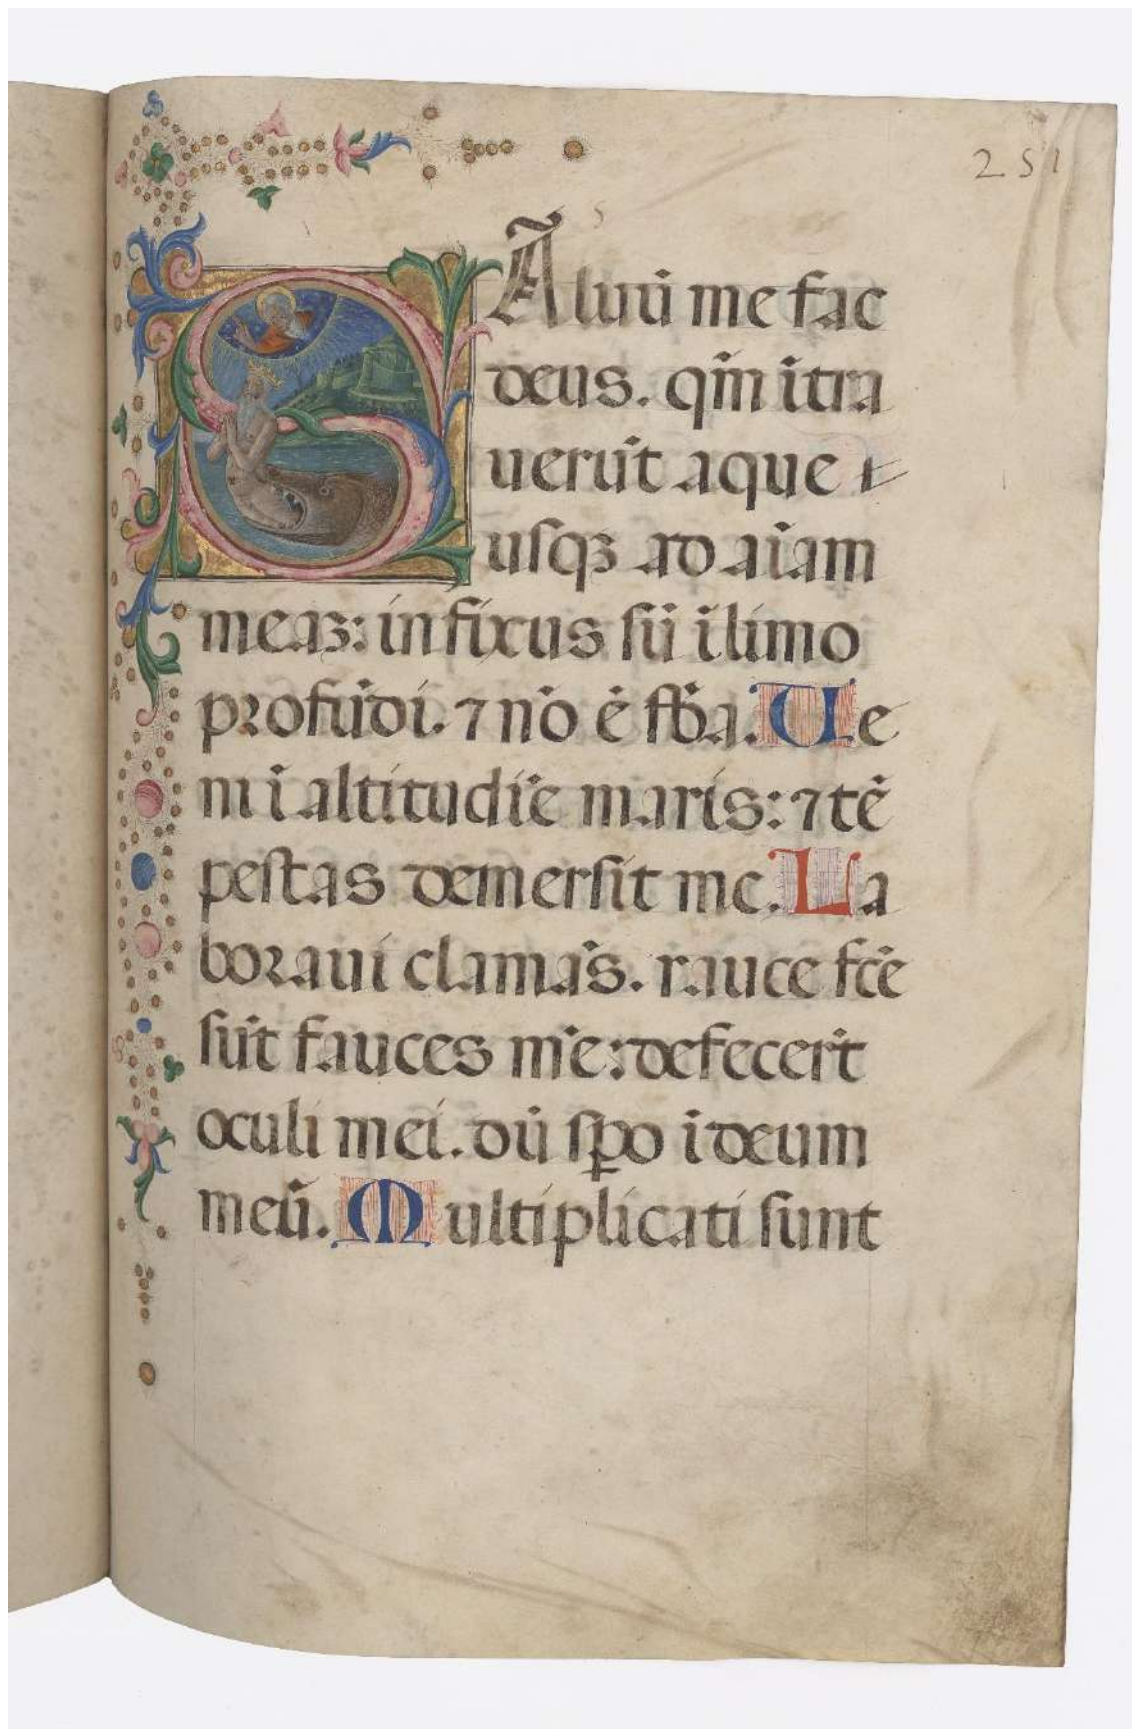 251
SAluū me fac
deus. qm̄ ītra
uerūt aque
usqꝫ ad aīam
meaꝫ: infixus sū ī limo
profūdi. ⁊ nō ē sb̄a. Ue
ni ī altitudīe maris: ⁊ tē
pestas demersit me. La
boraui clamās. rauce fc̄e
sūt fauces mē: defecert̄
oculi mei. dū sꝑo ī deum
meū. Multiplicati sunt